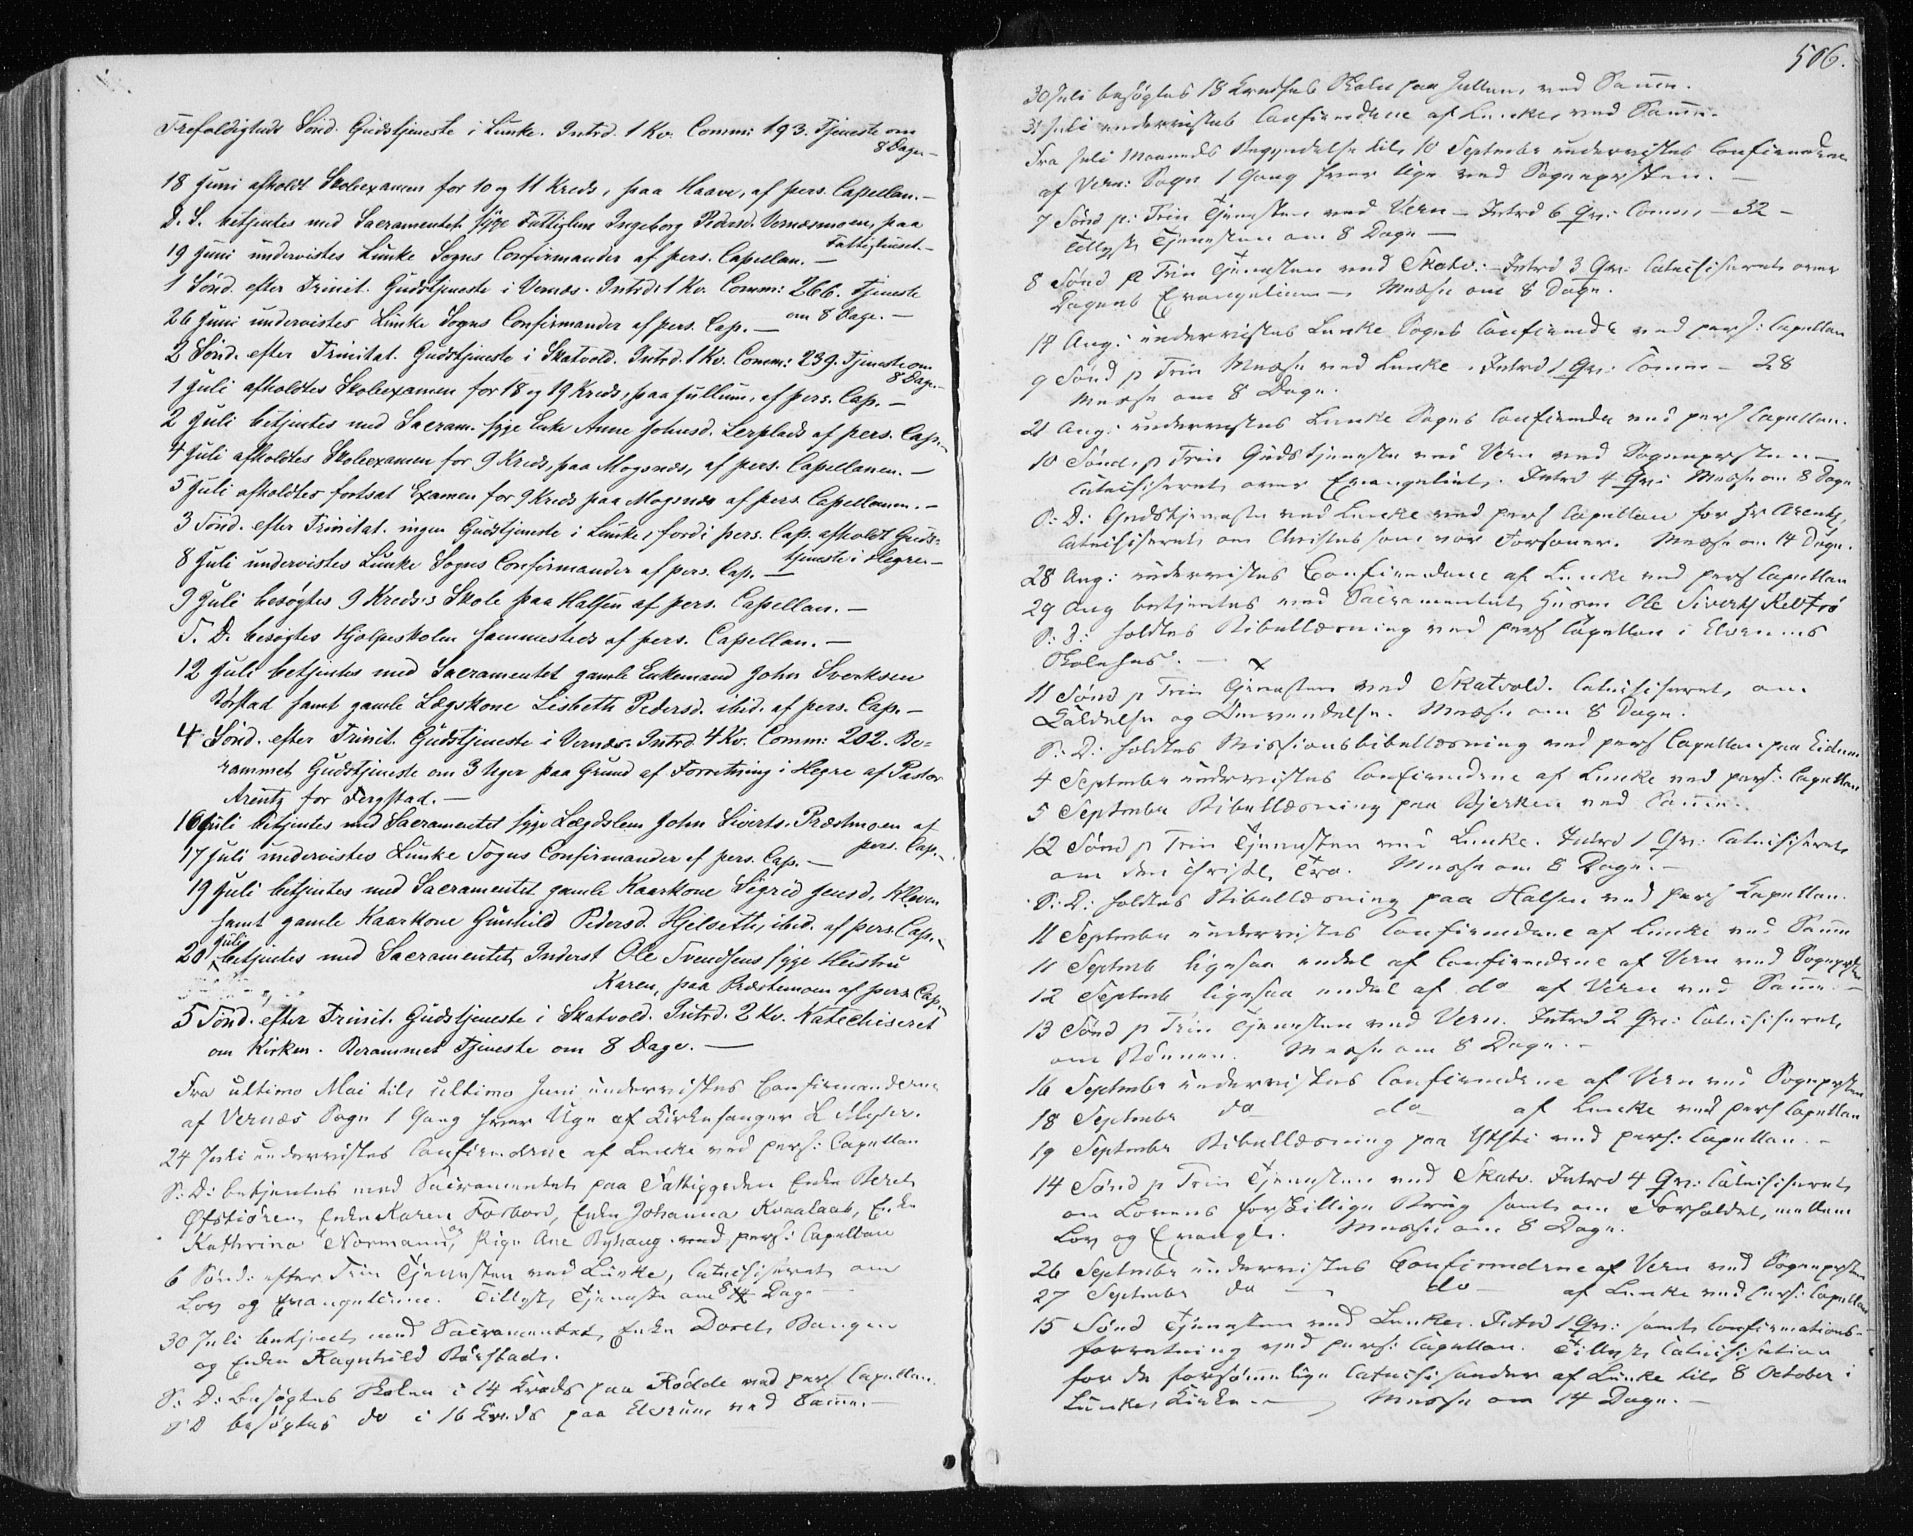 Trefoldigheds Sönd. Gudstjeneste i Lånke. Introd. 1 Kv. Comm: 193. Tjeneste om
8 Dage. —
18 Juni afholdt Skoleexamen for 10 og 11 Kreds, paa Haave, af pers. Capellan. —
D. S. betjentes med Sacramentet syge Fattiglem Ingeborg Pedersd. Vernæsmoen, paa
Fattighuset. —
19 Juni undervistes Lånke Sogns Confirmander af pers. Capellan. —
1 Sönd. efter Trinit. Gudstjeneste i Vernæs. Introd: 1 Kv. Comm: 266. Tjeneste
om 8 Dage. —
26 Juni undervistes Lånke Sogns Confirmander af pers. Cap. —
2 Sönd. efter Trinitat. Gudstjeneste i Skatvold. Introd. 1 Kv. Comm: 239. Tjeneste om
8 Dage. —
1 Juli afholdtes Skoleexamen for 18 og 19 Kreds, paa Jullum, af pers. Cap. —
2 Juli betjentes med Sacram. syge Enke Anne Johnsd. Lerplads af pers. Cap. —
4 Juli afholdtes Skoleexamen for 9 Kreds, paa Mogsnæs, af pers. Capellanen. —
5 Juli afholdtes fortsat Examen for 9 Kreds paa Mogsnæs af pers. Capellanen. —
3 Sönd. efter Trinitat. ingen Gudstjeneste i Lånke, fordi pers. Cap. afholdt Guds-
tjeneste i Hegre. —
8 Juli undervistes Lånke Sogns Confirmander af pers. Cap. —
9 Juli besøgtes 9 Kreds's Skole paa Halsen af pers. Capellan. —
S. D. besøgtes Hjelpeskolen sammesteds af pers. Capellan. —
12 Juli betjentes med Sacramentet gamle Enkemand John Sverksen
Vorstad samt gamle Lægskone Lisbeth Pedersd. ibid. af pers. Cap. —
4 Sönd. efter Trinit. Gudstjeneste i Vernæs. Introd. 4 Kv. Comm: 202. Be-
rammet Gudstjeneste om 3 Uger paa Grund af Forretning i Hegre af Pastor
Arentz for Bergstad. —
16 Juli betjentes med Sacramentet syge Lægdslem John Siverts. Præstmoen af
pers. Cap. —
17 Juli undervistes Lånke Sogns Confirmander af pers. Cap. —
19 Juli betjentes med Sacramentet gamle Kaarkone Sigrid Jensd. Kleven
samt gamle Kaarkone Gunhild Pedersd. Hjelseth, ibid. af pers. Cap. —
20 Juli betjentes med Sacramentet Inderst Ole Svendsens syge Hustru
Karen, paa Præstemoen af pers. Cap. —
5 Sönd. efter Trinit. Gudstjeneste i Skatvold. Introd. 2 Kv. Katechiseret
om Kirken. Berammet Tjeneste om 8 Dage. —
Fra ultimo Mai til ultimo Juni undervistes Confirmanderne
af Vernæs Sogn 1 Gang hver Uge af Kirkesanger L Meyer.
24 Juli undervistes Confirmderne af Lånke ved pers: Capellan
S: D: betjentes med Sacramentet paa Fattiggården Enke Beret
Øfstiøren, Enke Karen Forbord, Enke Johanna Kvaalaab, Enke
Kathrina Normann, og Pige Ane Byhaug ved pers: Capellan
6 Sönd: efter Trin Tjenesten ved Lånke, catechiseret om
Lov og Evangelium. Tillyst Tjeneste om 8 Dage —
30 Juli betjent med Sacramentet Enke Doret Bangen
og Enken Ragnhild Börstad.
S: D: Besøgtes Skolen i 14 Kreds paa Rödde ved pers Capellan.
S D besøgtes do i 16 Kreds paa Elvrum ved Samme. —
506.
30 Juli besøgtes 18 Kredses Skole paa Jullum, ved Samme.
31 Juli undervistes Confirmdene af Lånke, ved Samme.
Fra Juli Maaneds Begyndelse til 10 September undervistes Confirmdene
af Vern: Sogn 1 Gang hver Uge ved Sognepresten. —
7 Sönd p: Trin Tjenesten ved Vern — Introd 6 Qv: Comm — 32 —
Tillyst Tjenesten om 8 Dage —
8 Sönd p Trin Tjenesten ved Skatv: — Introd 3 Qv: Catechiseret over
Dagens Evangelium — Messe om 8 Dage.
14 Aug: undervistes Lånke Sogns Confirmde ved pers: Capellan
9 Sönd p Trin Messe ved Lånke. Introd 1 Qv: Comm — 28
Messe om 8 Dage.
21 Aug: undervistes Lånke Sogns Confirmde ved pers Capellan.
10 Sönd. p Trin Gudstjeneste ved Vern ved Sognepresten —
Catechiseret over Evangeliet. Introd 4 Qv: Messe om 8 Dage
S: D: Gudstjeneste ved Lånke ved pers Capellan for Hr Arentz,
Catechiseret om Christus som vor Forsoner. Messe om 14 Dage.
28 Aug: undervistes Confirmdene af Lånke ved pers Capellan
29 Aug betjentes med Sacramentet Husm Ole Siverts Reitrö
S: D: holdtes Bibellæsning ved pers Capellan i Elvrums
Skolehus. —
11 Sönd p Trin Tjenesten ved Skatvold. Catechiseret om
Kaldelse og Omvendelse. Messe om 8 Dage.
S: D: holdtes Missionsbibellæsning ved pers Capellan paa Eidum
4 September undervistes Confirmdene af Lånke ved pers: Capellan
5 September Bibellæsning paa Bjerken ved Samme.
12 Sönd p Trin Tjenesten ved Lånke. Introd 1 Qv: Catechiseret
om den christl. Tro. Messe om 8 Dage. —
S: D: holdtes Bibellæsning paa Halsen ved pers Capellan.
11 September undervistes Confirmdene af Lånke ved Samme
11 Septemb ligesaa endel af Confirmdene af Vern ved Sogneprsten
12 Septemb ligesaa endel af do af Vern ved Samme. —
13 Sönd p Trin Tjenesten ved Vern. Introd 2 Qv: Catechiseret
om Bönnen. Messe om 8 Dage. —
16 September undervistes Confirmdene af Vern ved Sogneprsten
18 September do do af Lånke ved pers Capellan
19 September Bibellæsning paa Ystti ved pers: Capellan. —
14 Sönd p Trin Tjenesten ved Skatv. Introd 4 Qv: Catechiseret
om Lovens forskjellige Brug samt om Forholdet mellem
Lov og Evangl. Messe om 8 Dage.
26 September undervistes Confirmdene af Vern ved Sogneprsten
27 September do — do — af Lånke ved pers: Capellan
15 Sönd Tjenesten ved Lånke. Introd 1 Qv: samt Confirmations-
forretning ved pers: Capellan. Tillyst Catechisation
for de forsømmelige Catechisander af Lånke til 8 October i
Lånke Kirke. — Messe om 14 Dage. —